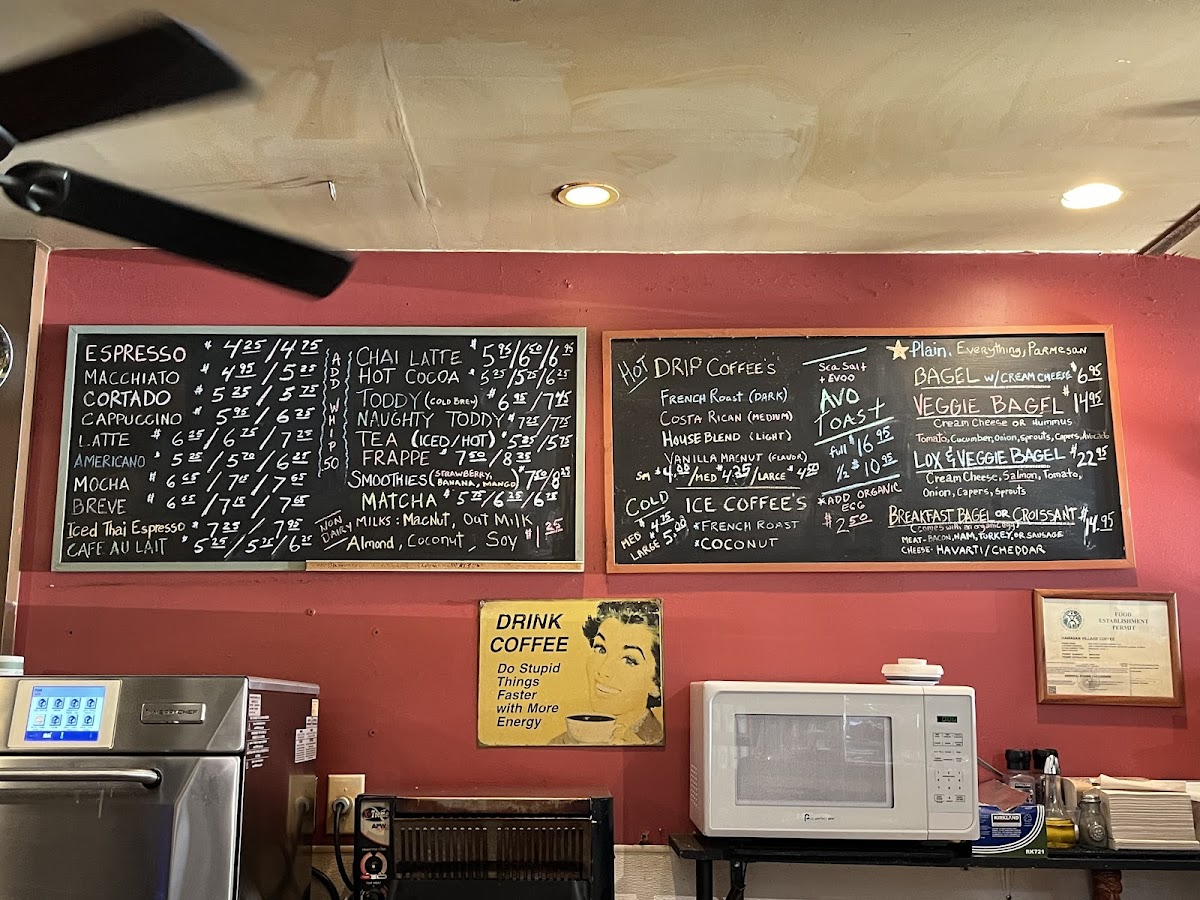 ESPRESSO $ 4.25/4.75
MACCHIATO $ 4.95/5.25
CORTADO $ 5.25/5.75
CAPPUCCINO $ 5.95/6.25
LATTE $ 6.25/6.75/7.25
AMERICANO $ 5.25/5.70/6.25
MOCHA $ 6.65/7.15/7.65
BREVE $ 6.65/7.15/7.65
Iced Thai Espresso $ 7.25/7.95
CAFE AU LAIT $ 5.25/5.75/6.25
ADD WHIP .50
CHAI LATTE $ 5.95/6.50/6.95
HOT COCOA $ 5.25/5.75/6.25
TODDY (COLD BREW) $ 6.95/7.45
NAUGHTY TODDY $ 7.25/7.75
TEA (ICED/HOT) $ 5.25/5.75
FRAPPE $ 7.50/8.25
SMOOTHIES (STRAWBERRY, BANANA, MANGO) $ 7.50/8.25
MATCHA $ 5.75/6.25/6.75
NON DAIRY MILKS: MACNUT, OUT MILK
Almond, COCONUT, SOY $1.25
HOT DRIP COFFEE'S
FRENCH ROAST (DARK)
COSTA RICAN (MEDIUM)
HOUSE BLEND (LIGHT)
VANILLA MACNUT (FLAVOR)
SM $4.00/MED $4.25/LARGE $4.50
COLD ICE COFFEE'S
MED $4.75
LARGE 5.00
*FRENCH ROAST
*COCONUT
Sea Salt
+ EVOO
AVO
TOAST
full $16.95
1/2 $10.95
*ADD ORGANIC
EGG
$2.50
Plain, Everything, Parmesan
BAGEL W/CREAM CHEESE $6.95
VEGGIE BAGEL $14.95
Cream Cheese OR Hummus
Tomato, Cucumber, Onion, Sprouts, Capers, Avocado
LOX & VEGGIE BAGEL $22.95
Cream Cheese, Salmon, Tomato,
Onion, Capers, Sprouts
BREAKFAST BAGEL OR CROISSANT $14.95
(comes with an organic egg)
MEAT- BACON, HAM, TURKEY, OR SAUSAGE
CHEESE- HAVARTI/CHEDDAR
DRINK
COFFEE
Do Stupid
Things
Faster
with More
Energy
FOOD
ESTABLISHMENT
PERMIT
HAWAIIAN VILLAGE COFFEE
TURBOCHEF
APW
KIRKLAND
RK721